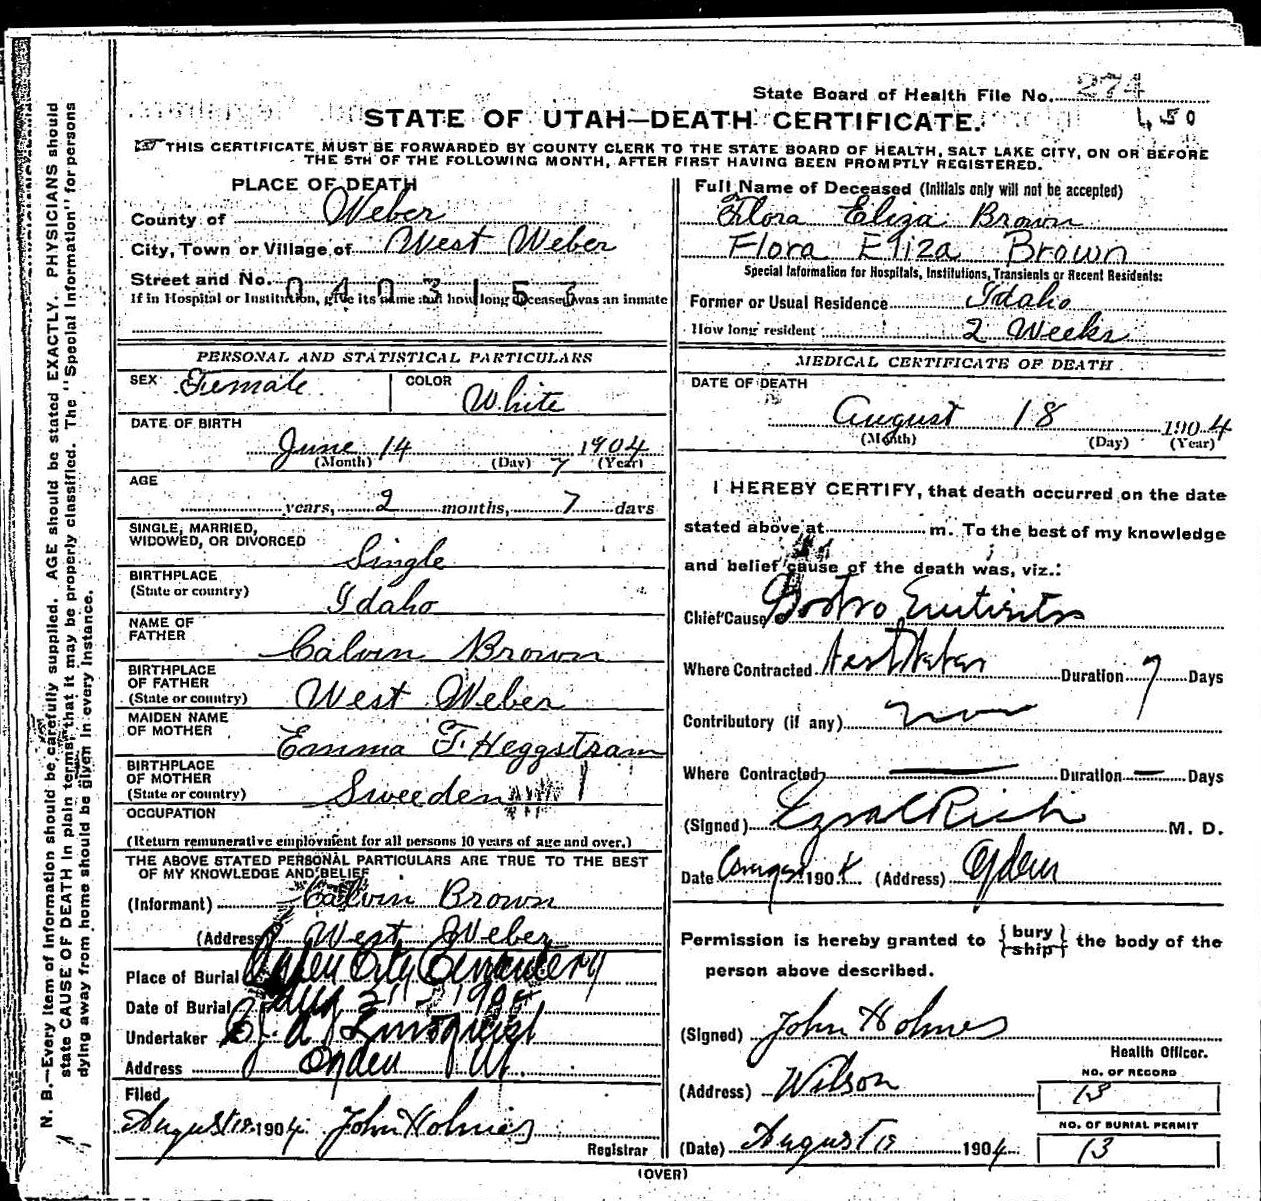 State Board of Health File No. 274
STATE OF UTAH—DEATH CERTIFICATE.
1,50
THIS CERTIFICATE MUST BE FORWARDED BY COUNTY CLERK TO THE STATE BOARD OF HEALTH, SALT LAKE CITY, ON OR BEFORE
THE 5TH OF THE FOLLOWING MONTH, AFTER FIRST HAVING BEEN PROMPTLY REGISTERED.
N. B.—Every item of information should be carefully supplied. AGE should be stated EXACTLY. PHYSICIANS should
state CAUSE OF DEATH in plain terms, that it may be properly classified. The "Special Information" for persons
dying away from home should be given in every instance.
PLACE OF DEATH
County of Weber
City, Town or Village of West Weber
Street and No.
0403153
If in Hospital or Institution, give its name and how long deceased was an inmate
PERSONAL AND STATISTICAL PARTICULARS
SEX Female COLOR White
DATE OF BIRTH
June 14 1904
(Month) (Day) 7 (Year)
AGE
years, 2 months, 7 days
SINGLE, MARRIED,
WIDOWED, OR DIVORCED Single
BIRTHPLACE
(State or country) Idaho
NAME OF
FATHER Calvin Brown
BIRTHPLACE
OF FATHER
(State or country) West Weber
MAIDEN NAME
OF MOTHER Emma F. Heggstram
BIRTHPLACE
OF MOTHER
(State or country) Sweeden
OCCUPATION
(Return remunerative employment for all persons 10 years of age and over.)
THE ABOVE STATED PERSONAL PARTICULARS ARE TRUE TO THE BEST
OF MY KNOWLEDGE AND BELIEF
(Informant) Calvin Brown
(Address) West Weber
Place of Burial Ogden City Cemetery
Date of Burial Aug 21 1904
Undertaker Lindquist
Address Ogden Ut.
Filed
August 19 1904. John Holmes
Registrar
Full Name of Deceased (Initials only will not be accepted)
Flora Eliza Brown
Flora Eliza Brown
Special Information for Hospitals, Institutions, Transients or Recent Residents:
Former or Usual Residence Idaho
How long resident 2 Weeks
MEDICAL CERTIFICATE OF DEATH
DATE OF DEATH
August 18 1904
(Month) (Day) (Year)
I HEREBY CERTIFY, that death occurred on the date
stated above at m. To the best of my knowledge
and belief cause of the death was, viz.:
Chief Cause Gastro Enteritis
Where Contracted West Weber Duration 7 Days
Contributory (if any) none
Where Contracted — Duration — Days
(Signed) Ezra C Rich M. D.
Date 1904. (Address) Ogden
Permission is hereby granted to {bury/ship} the body of the
person above described.
(Signed) John Holmes
Health Officer.
(Address) Wilson
NO. OF RECORD
13
(Date) August 19 1904
NO. OF BURIAL PERMIT
13
(OVER)